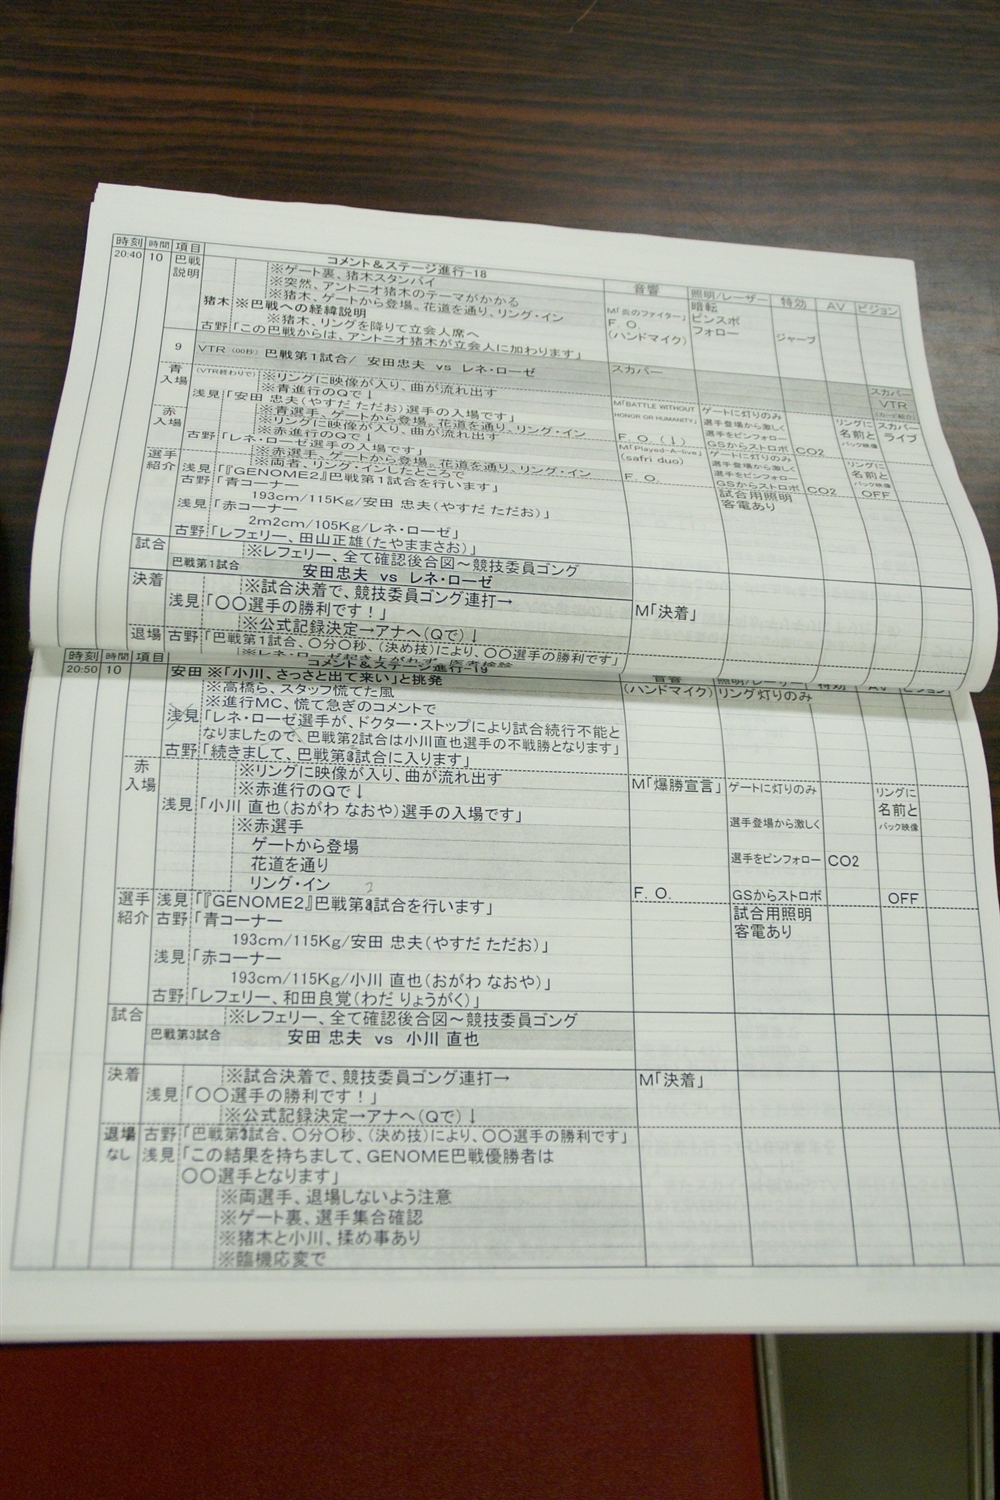 時刻 時間 項目 コメント&ステージ進行-18 音響 照明/レーザー 特効 AV ビジョン
20:40 10 巴戦説明 ※ゲート裏、猪木スタンバイ 暗転
※突然、アントニオ猪木のテーマがかかる M「炎のファイター」 ピンスポ
※猪木、ゲートから登場。花道を通り、リング・イン F. O. フォロー
猪木 ※巴戦への経緯説明 (ハンドマイク) ジャーブ
※猪木、リングを降りて立会人席へ
古野「この巴戦からは、アントニオ猪木が立会人に加わります」
9 VTR (00秒) 巴戦第1試合/ 安田忠夫 vs レネ・ローゼ スカパー スカパー
VTR
青入場 (VTR終わりで) ※リングに映像が入り、曲が流れ出す M「BATTLE WITHOUT HONOR OR HUMANITY」 ゲートに灯りのみ リングに スカパー
※青進行のQで↓ 選手登場から激しく 名前と ライブ
浅見「安田 忠夫(やすだ ただお)選手の入場です」 選手をピンフォロー バック映像
※青選手、ゲートから登場。花道を通り、リング・イン F. O. (↓) GSからストロボ CO2
赤入場 ※リングに映像が入り、曲が流れ出す M「Played-A-live」 ゲートに灯りのみ リングに
※赤進行のQで↓ (safri duo) 選手登場から激しく 名前と
古野「レネ・ローゼ選手の入場です」 選手をピンフォロー バック映像
※赤選手、ゲートから登場。花道を通り、リング・イン F. O. GSからストロボ CO2 OFF
選手紹介 ※両者、リング・インしたところで 試合用照明
浅見「『GENOME2』巴戦第1試合を行います」 客電あり
古野「青コーナー
193cm/115Kg/安田 忠夫(やすだ ただお)」
浅見「赤コーナー
2m2cm/105Kg/レネ・ローゼ」
古野「レフェリー、田山正雄(たやままさお)」
試合 ※レフェリー、全て確認後合図〜競技委員ゴング
巴戦第1試合 安田忠夫 vs レネ・ローゼ
決着 ※試合決着で、競技委員ゴング連打→ M「決着」
浅見「〇〇選手の勝利です!」
※公式記録決定→アナへ(Qで)↓
退場 古野「巴戦第1試合、〇分〇秒、(決め技)により、〇〇選手の勝利です」
時刻 時間 項目 コメント&ステージ進行-19 音響 照明/レーザー 特効 AV ビジョン
20:50 10 安田 ※「小川、さっさと出て来い」と挑発 (ハンドマイク) リング灯りのみ
※高橋ら、スタッフ慌てた風
※進行MC、慌て急ぎのコメントで
浅見「レネ・ローゼ選手が、ドクター・ストップにより試合続行不能と
なりましたので、巴戦第2試合は小川直也選手の不戦勝となります」
古野「続きまして、巴戦第3試合に入ります」
赤入場 ※リングに映像が入り、曲が流れ出す M「爆勝宣言」 ゲートに灯りのみ リングに
※赤進行のQで↓ 名前と
浅見「小川 直也(おがわ なおや)選手の入場です」 選手登場から激しく バック映像
※赤選手
ゲートから登場 選手をピンフォロー CO2
花道を通り
リング・イン F. O. GSからストロボ OFF
2
選手紹介 浅見「『GENOME2』巴戦第3試合を行います」 試合用照明
古野「青コーナー 客電あり
193cm/115Kg/安田 忠夫(やすだ ただお)」
浅見「赤コーナー
193cm/115Kg/小川 直也(おがわ なおや)」
古野「レフェリー、和田良覚(わだ りょうがく)」
試合 ※レフェリー、全て確認後合図〜競技委員ゴング
巴戦第3試合 安田 忠夫 vs 小川 直也
決着 ※試合決着で、競技委員ゴング連打→ M「決着」
浅見「〇〇選手の勝利です!」
※公式記録決定→アナへ(Qで)↓
退場なし 古野「巴戦第3試合、〇分〇秒、(決め技)により、〇〇選手の勝利です」
浅見「この結果を持ちまして、GENOME巴戦優勝者は
〇〇選手となります」
※両選手、退場しないよう注意
※ゲート裏、選手集合確認
※猪木と小川、揉め事あり
※臨機応変で